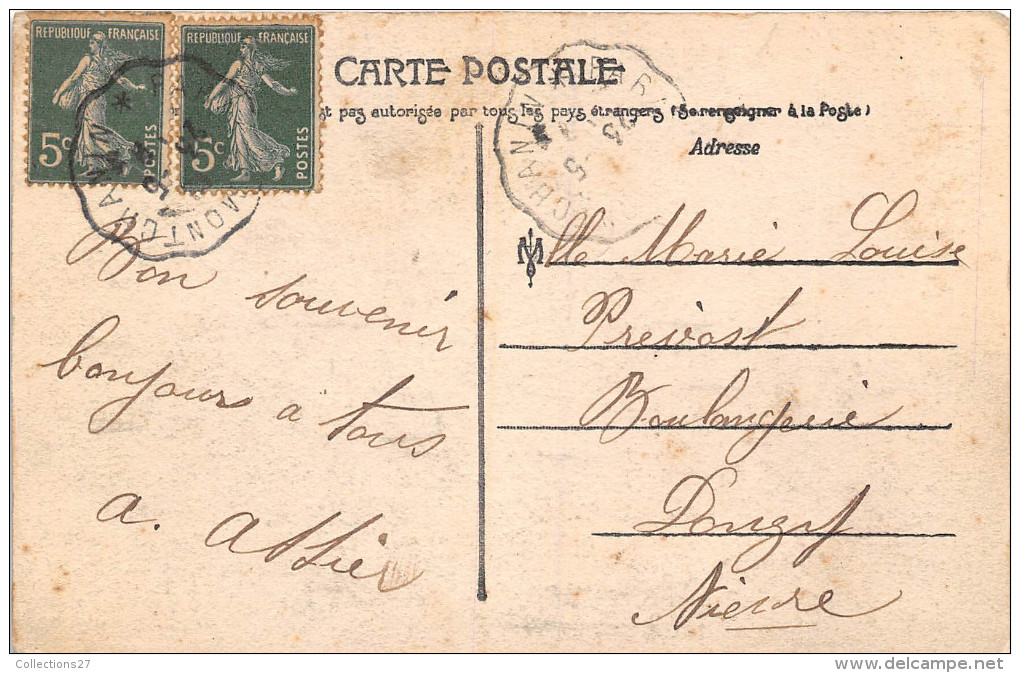 REPUBLIQUE FRANÇAISE
5c
POSTES
REPUBLIQUE FRANÇAISE
5c
POSTES
MONTCHANIN
CARTE POSTALE
t pas autorisée par tous les pays étrangers (Se renseigner à la Poste)
Adresse
Bon souvenir
bonjour a tous
a. Attier
Mlle Marie Louise
Prévost
Boulangerie
Donzy
Nievre
Collections27
www.delcampe.net